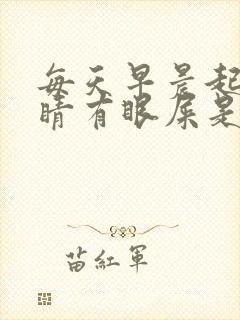 每天早晨起
睛有眼屎是
苗红军